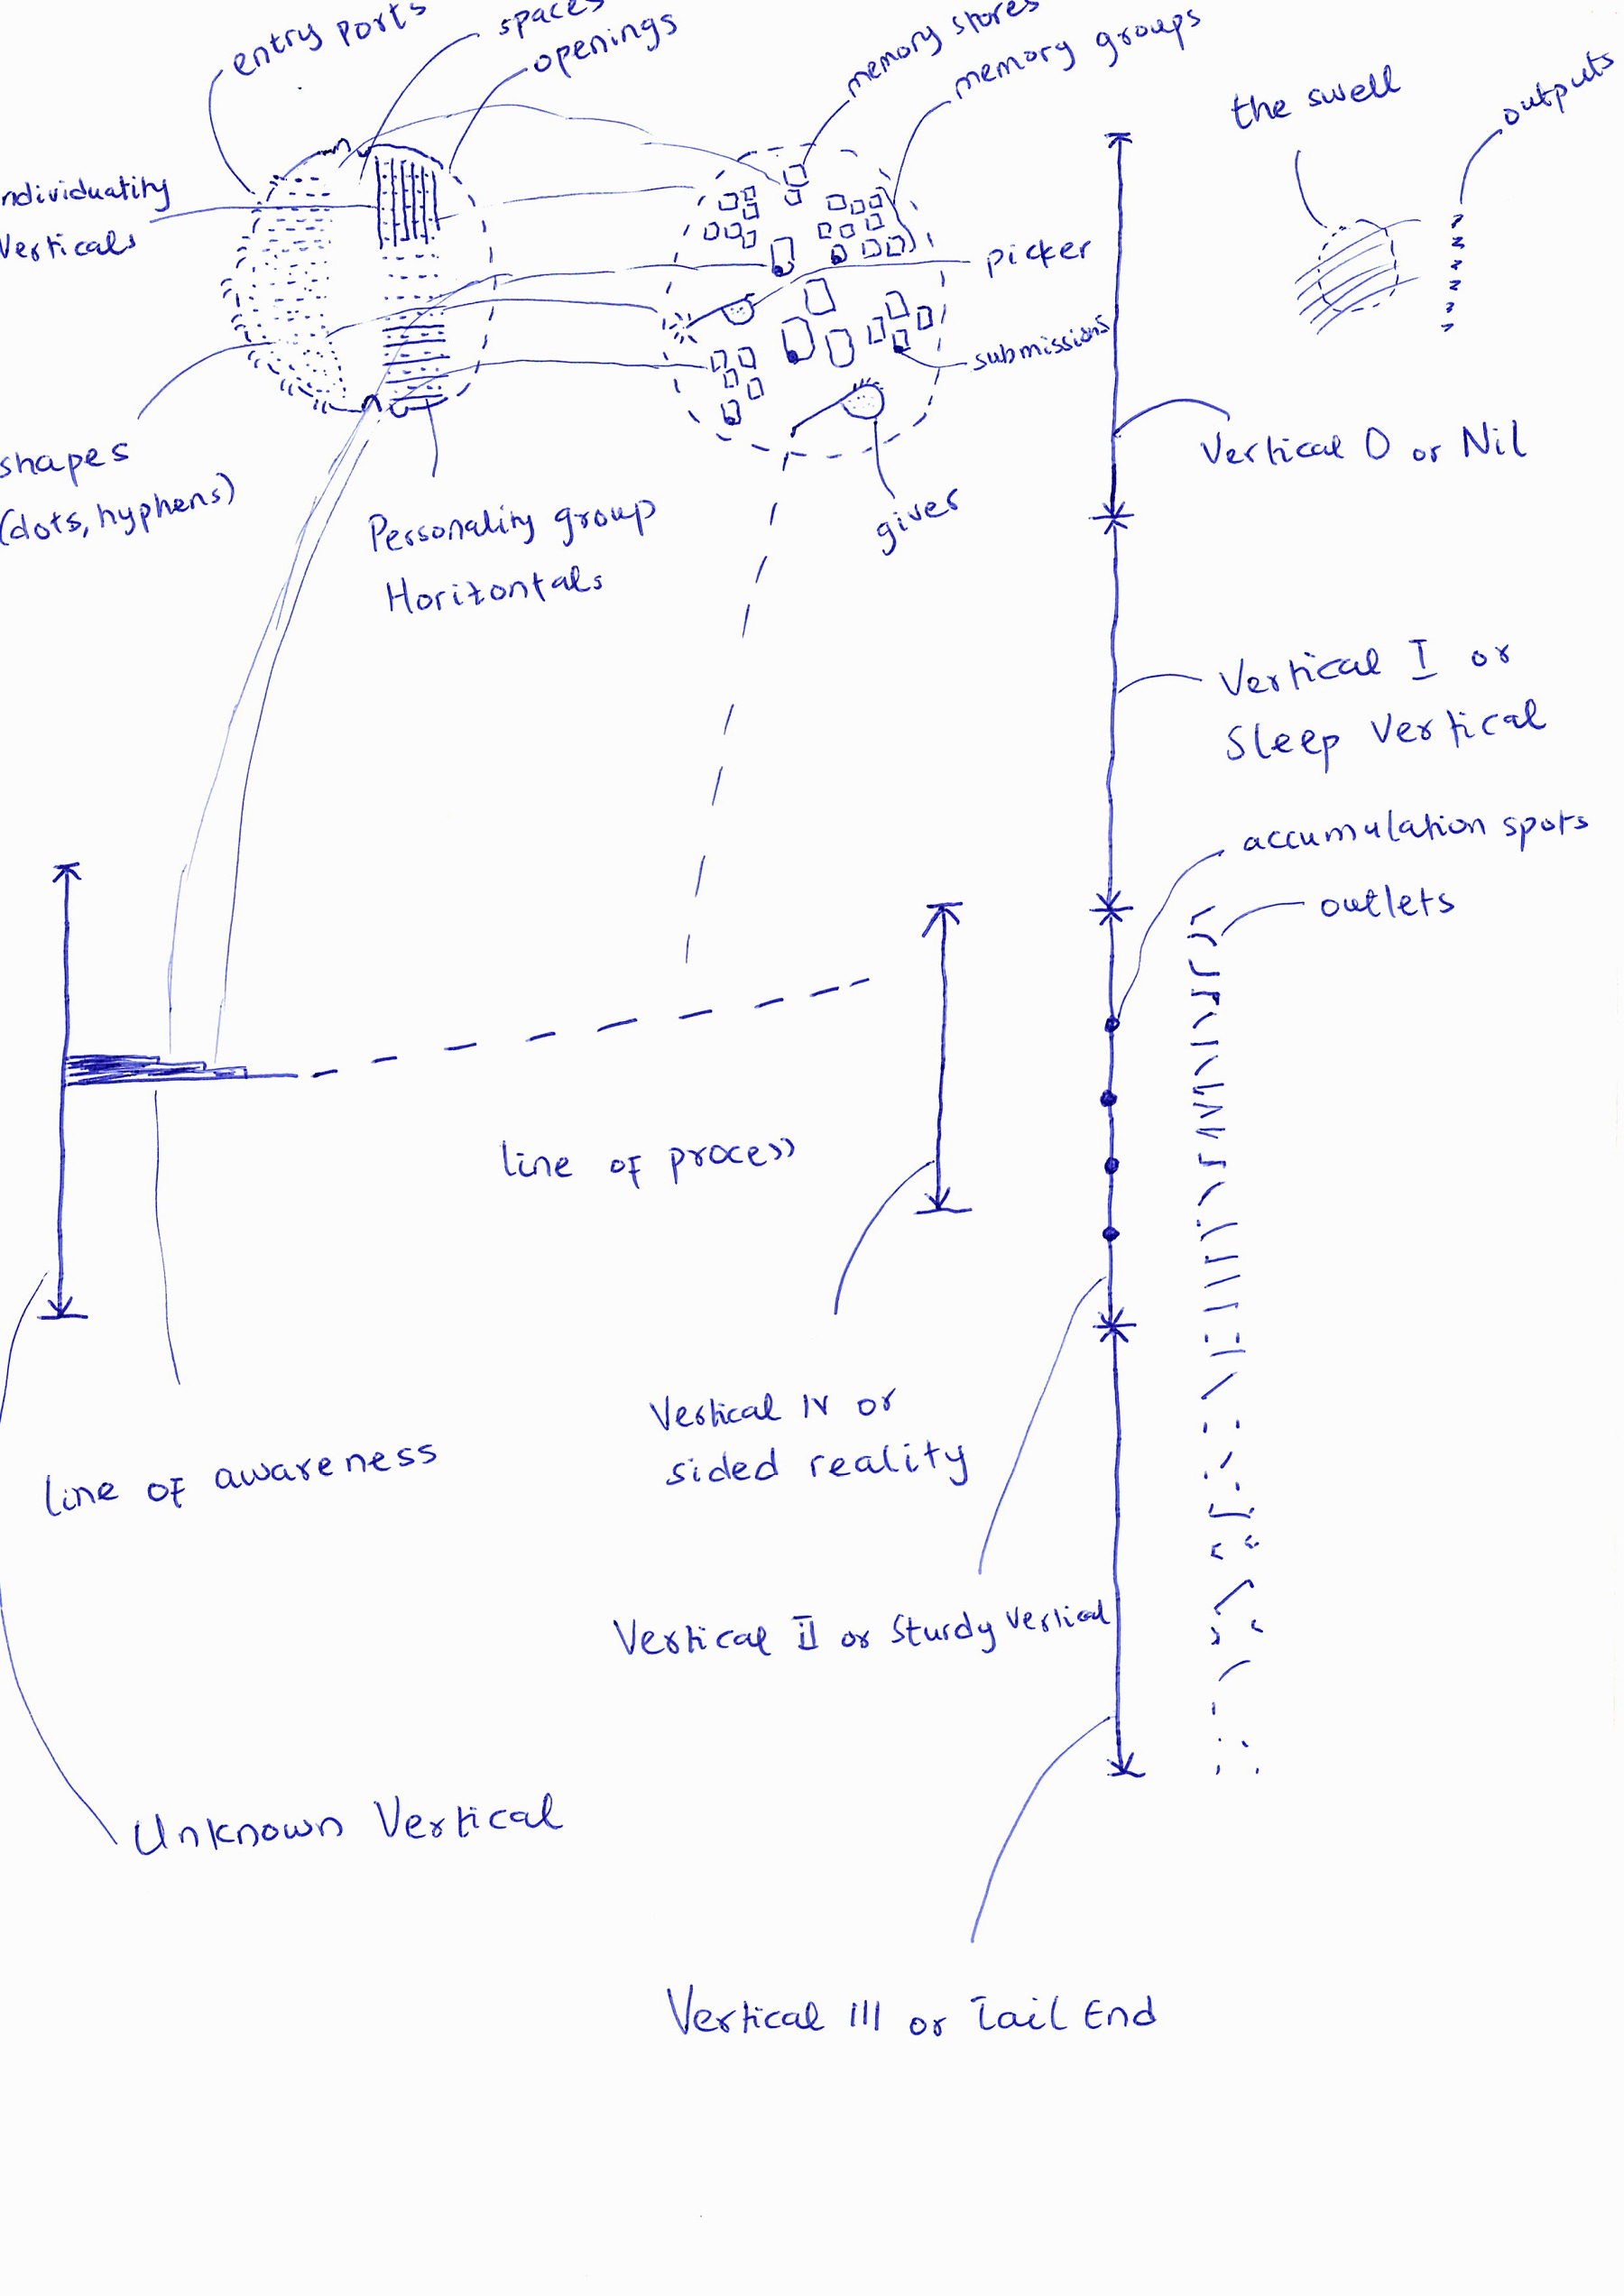 entry ports
spaces
openings
memory stores
memory groups
the swell
outputs
ndividuality
Verticals
picker
submissions
Vertical 0 or Nil
shapes
(dots, hyphens)
Personality group
Horizontals
giver
Vertical I or
Sleep Vertical
accumulation spots
outlets
line of process
Vertical IV or
sided reality
line of awareness
Vertical II or Sturdy Vertical
Unknown Vertical
Vertical III or Tail End